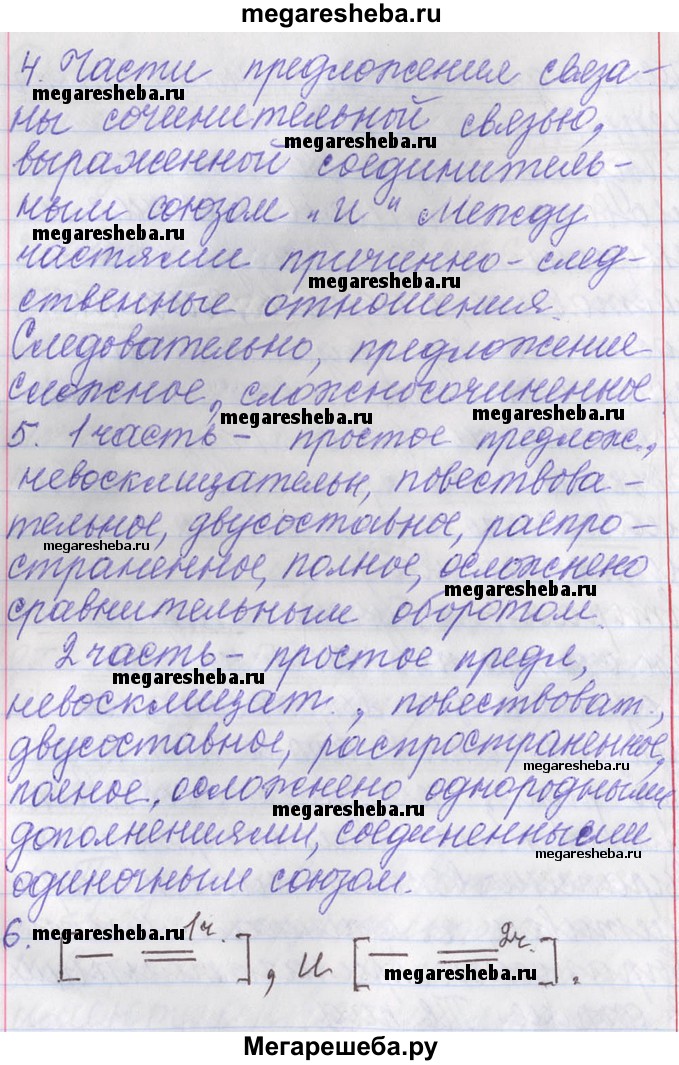 megaresheba.ru
4. Части предложения связа-
megaresheba.ru
ны сочинительной связью,
megaresheba.ru
выраженной соединитель-
ным союзом "и" Между
megaresheba.ru
частями приченно-след-
megaresheba.ru
ственные отношения.
Следовательно, предложение
сложное, сложносочиненное
megaresheba.ru
megaresheba.ru
5. 1 часть - простое предлож.,
невосклицательн, повествова-
тельное, двусоставное, распро-
megaresheba.ru
страненное, полное, осложнено
megaresheba.ru
сравнительным оборотом.
2 часть - простое предл,
megaresheba.ru
невосклицат., повествоват.,
двусоставное, распространенное,
megaresheba.ru
полное, осложнено однородными
megaresheba.ru
дополнениями, соединенными
megaresheba.ru
одиночным союзом.
6. [— = 1ч.], и [— = 2ч.].
megaresheba.ru
megaresheba.ru
Мегарешеба.ру